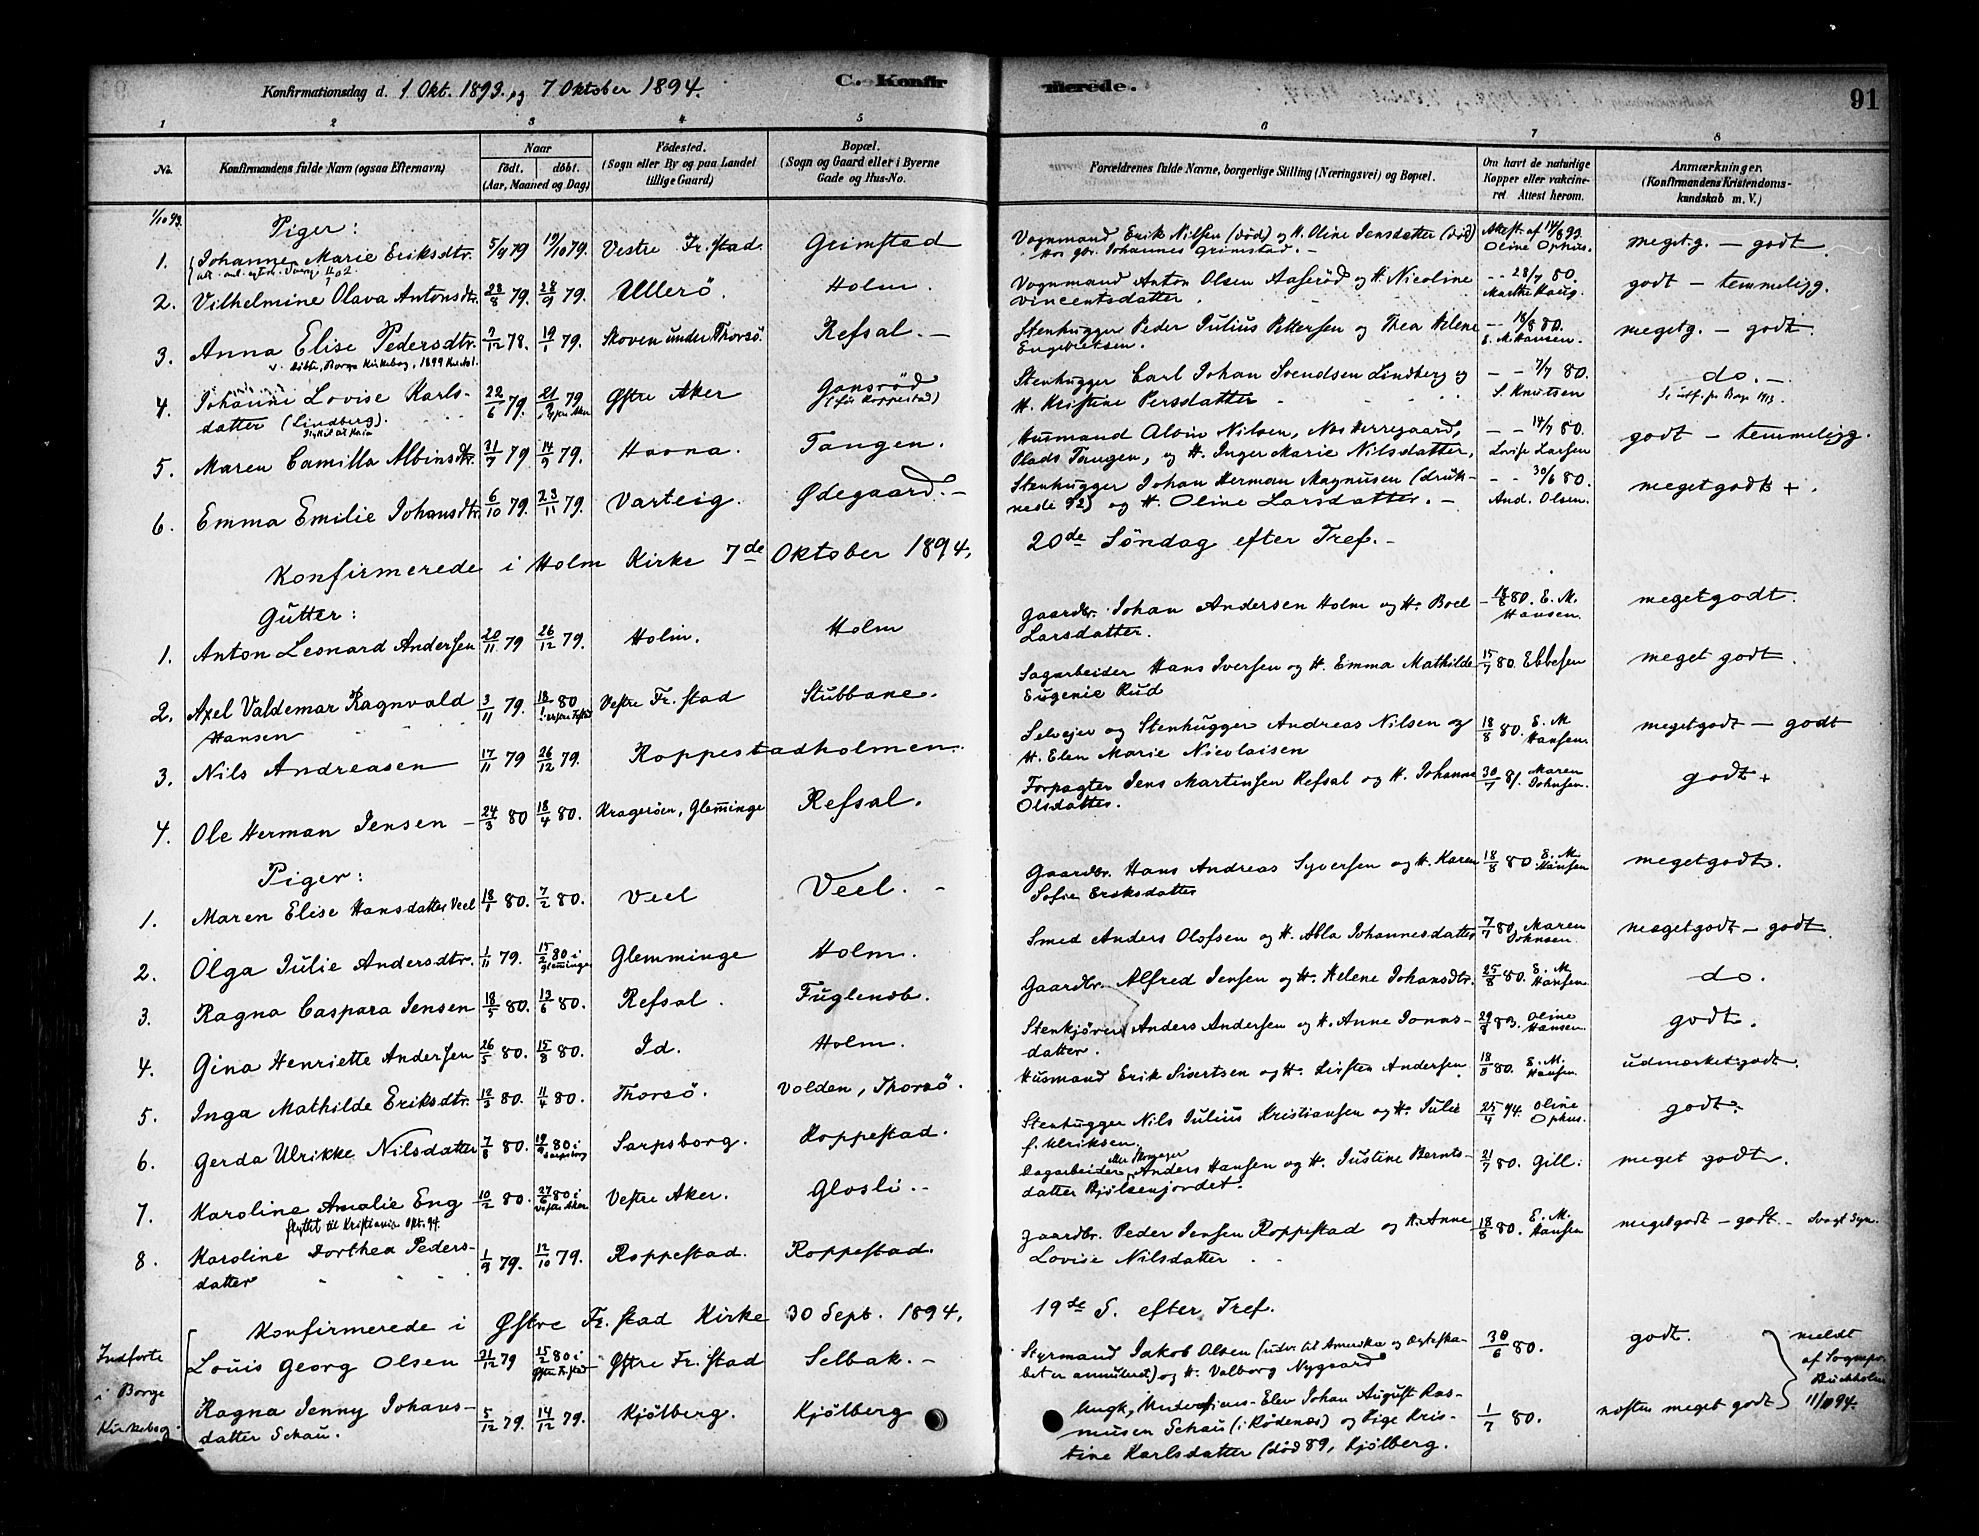 Konfirmationsdag d. 1 Okt. 1893. og 7 Oktober 1894. C. Konfir
merede. 91
1 2 3 4 5 6 7 8
No. Konfirmandens fulde Navn (ogsaa Efternavn)
Naar
født. døbt.
(Aar, Maaned og Dag)
Fødested.
(Sogn eller By og paa Landet
tillige Gaard)
Bopæl.
(Sogn og Gaard eller i Byerne
Gade og Hus-No.
Forældrenes fulde Navne, borgerlige Stilling (Næringsvei) og Bopæl.
Om havt de naturlige
Kopper eller vakcine-
ret Attest herom.
Anmærkninger.
(Konfirmandens Kristendoms-
kundskab m. V.)
1/10 93. Piger:
1. Johanne Marie Eriksdtr. 5/9 79 19/10 79. Vestre Fr.stad. Grimstad Vognmand Erik Nilsen (død) og H. Oline Jensdatter (død) Attest. af 14/8 93. meget g. – godt.
Hos gbr. Johannes Grimstad. – Oline Ophus.
2. Vilhelmine Olava Antonsdtr. 28/8 79. 28/9 79. Ullerö. Holm. Vognmand Anton Olsen Aaseröd og H. Nicoline - - 28/7 80. godt – temmelig g.
Vincentsdatter. Marthe Haug.
3. Anna Elise Pedersdtr. 7/12 78. 19/1 79. Skoven under Thorsö. Refsal. – Stenhugger Peder Julius Pettersen og Thea Helene - - 18/8 80. meget g. – godt
Engebretsen. E. M. Hansen.
4. Johanne Lovise Karls- 22/6 79. 21/9 79. Østre Aker Gansröd Stenhugger Carl Johan Svendsen Lindberg og - - 7/7 80. do. –
datter (Lindberg). i Østre Aker (før Roppestad) H. Kristine Persdatter S. Knutsen
5. Maren Camilla Albinsdtr. 31/7 79 14/9 79. Havna. Tangen. Husmand Albin Nilsen, Nes Herregaard, - - 14/7 80. godt – temmelig g.
Plads Tangen, og H. Inger Marie Nilsdatter, Lovise Larsen
6. Emma Emilie Johansdtr. 6/10 79. 23/11 79. Varteig. Ødegaard. – Stenhugger Johan Herman Magnusen (druk- - - 30/6 80. meget godt + .
nede 92) og H. Oline Larsdatter. – And. Olsen.
Konfirmerede i Holm Kirke 7de Oktober 1894. 20de Söndag efter Tref. –
Gutter:
1. Anton Leonard Andersen 20/11 79 26/12 79. Holm. Holm Gaardbr. Johan Andersen Holm og H. Boel – 18/8 80. E. M. meget godt.
Larsdatter. Hansen.
2. Axel Valdemar Ragnvald 3/11 79. 18/1 80 Vestre Fr.stad Stubbane. Sagarbeider Hans Iversen og H. Emma Mathilde 15/7 80. Ebbesen meget godt.
Hansen Eugenie Rud
3. Nils Andreasen 17/11 79 26/12 79. Roppestadholmen. Selveier og Stenhugger Andreas Nilsen og 18/8 80. E. M. meget godt – godt
H. Elen Marie Nicolaisen Hansen.
4. Ole Herman Jensen – 24/3 80 18/4 80. Kragerøen, Glemminge Refsal. Forpagter Jens Martinsen Refsal og H. Johanne 30/7 81. Maren godt +
Olsdatter. Johnsen.
Piger:
1. Maren Elise Hansdatter Veel 18/1 80. 7/2 80. Veel Veel. – Gaardbr. Hans Andreas Syversen og H. Karen 18/8 80. E. M. meget godt.
Sofie Eriksdatter Hansen
2. Olga Julie Andersdtr. 1/11 79. 15/2 80 i Glemminge Glemminge Holm. Smed Anders Olofsen og H. Abla Johannesdatter 7/7 80. Maren Johnsen meget godt – godt.
3. Ragna Caspara Jensen 18/5 80. 13/6 80. Refsal. Fuglenæb. Gaardbr. Alfred Jensen og H. Helene Johansdtr. 25/8 80. E. M. Hansen do.
4. Gina Henriette Andersen 26/5 80. 15/8 80. Id. Holm. Stenkjörer Anders Andersen og H. Anne Jonas- Oline Hansen godt.
datter.
5. Inga Mathilde Eriksdtr. 12/3 80. 11/4 80. Thorsö. Volden, Thorsö. Husmand Erik Sivertsen og H. Kirsten Andersen E. M. Hansen. udmærket godt.
6. Gerda Ulrikke Nilsdatter 7/8 80. 19/9 80 i Sarpsborg Sarpsborg. Roppestad. Stenhugger Nils Julius Kristiansen og H. Julie 25/4 94. Oline Ophus. godt.
f. Ulriksen.
7. Karoline Amalie Eng 10/2 80. 27/6 80 i Vestre Aker Vestre Aker. Glosli. – Dagarbeider Anders Hansen og H. Justine Bernts- 21/7 80. Gill: meget godt.
flyttet til Kristiania Okt. 94. datter Bjölsenjordet.
8. Karoline Dorthea Peders- 1/9 79. 12/10 79. Roppestad. Roppestad. Gaardbr. Peder Jensen Roppestad og H. Anne 18/8 80. E. M. Hansen meget godt – godt – Svagt Syn.
datter Lovise Nilsdatter
Konfirmerede i Østre Fr.stad Kirke 30 Sept. 1894. 19de S. efter Tref.
Indførte Louis Georg Olsen 21/12 79 15/2 80 i Østre Fr.stad Østre Fr.stad Selbak. – Styrmand Jakob Olsen (udv. til Amerika og Ægteska- 30/6 80. godt. meldt
bet er annulleret) og H. Valborg Nygaard af Sognepr.
i Borge Ragna Jenny Johans- 5/12 79. 14/12 79. Kjölberg. Kjölberg Johan August Ras- 1/7 80. næsten meget godt Buchholm
Kirkebog. datter Schau. musen Schau (i Rödenæs) og Pige Kris- 11/10 94.
tine Karlsdatter (död 89, Kjölberg.